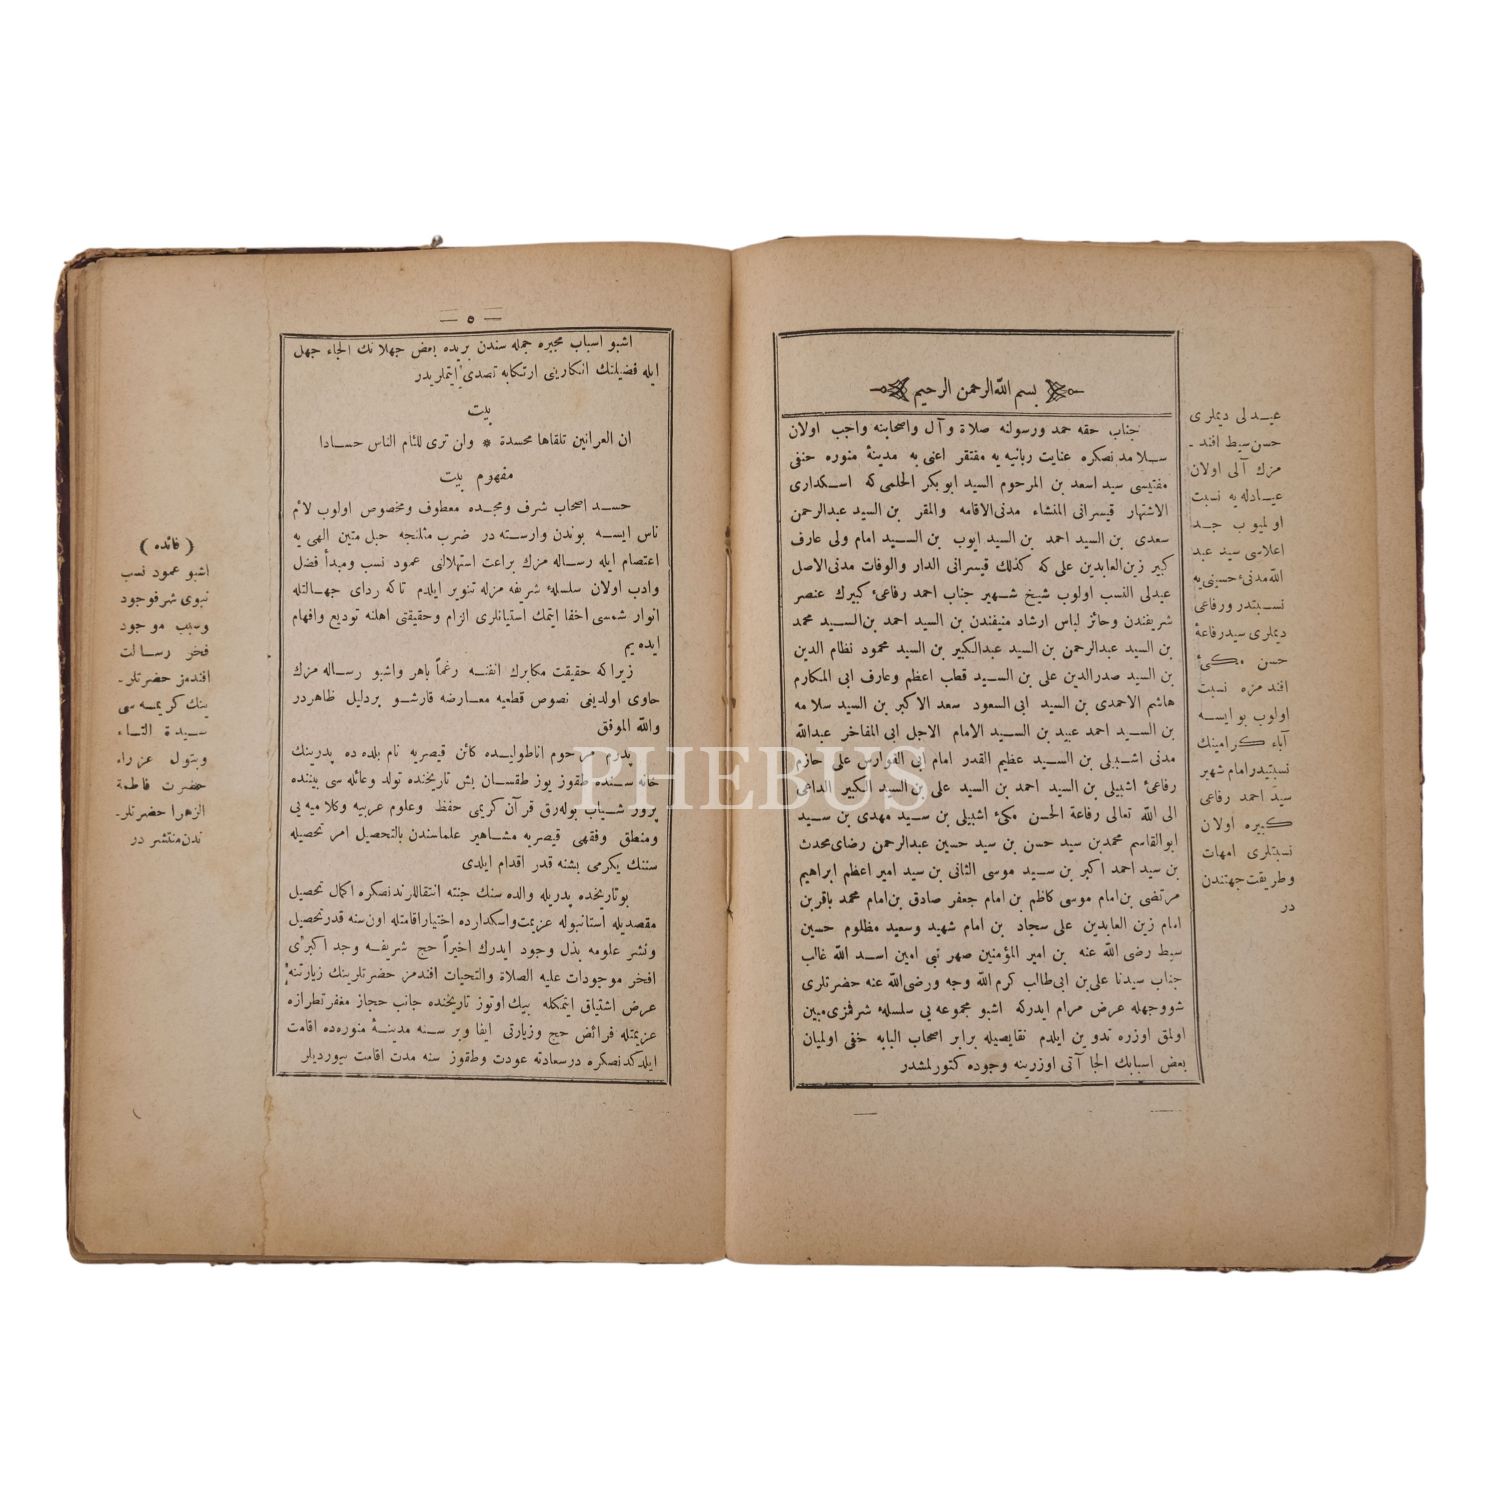 بسم الله الرحمن الرحیم
جناب حقه حمد ورسولنه صلاة وآل واصحابنه واجب اولان
سلامدنصكره عنایت ربانیه یه مفتقر اعنی به مدینهٔ منوره حنفی
مفتیسی سید اسعد بن المرحوم السید ابوبكر الحلمی كه اسكداری
الاشتهار قیسرانی المنشاء مدنی الاقامه والمقر بن السید عبدالرحمن
سعدی بن السید احمد بن السید ایوب بن السید امام ولی عارف
كبیر زین العابدین علی كه كذلك قیسرانی الدار والوفات مدنی الاصل
عیدلی النسب اولوب شیخ شهیر جناب احمد رفاعیٔ كبیرك عنصر
شریفندن وحائز لباس ارشاد منیفندن بن السید احمد بن السید محمد
بن السید عبدالرحمن بن السید عبدالكبیر بن السید محمود نظام الدین
بن السید صدرالدین علی بن السید قطب اعظم وعارف ابی المكارم
هاشم الاحمدی بن السید ابی السعود سعد الاكبر بن السید سلامه
بن السید احمد عبید بن السید الامام الاجل ابی المفاخر عبدالله
مدنی اشبیلی بن السید عظیم القدر امام ابی الفوارس علی حازم
رفاعیٔ اشبیلی بن السید احمد بن السید علی بن السید الكبیر الداعی
الی الله تعالی رفاعة الحسن مكیٔ اشبیلی بن سید مهدی بن سید
ابوالقاسم محمد بن سید حسن بن سید حسین عبدالرحمن رضای محدث
بن سید احمد اكبر بن سید موسی الثانی بن سید امیر اعظم ابراهیم
مرتضی بن امام موسی كاظم بن امام جعفر صادق بن امام محمد باقر بن
امام زین العابدین علی سجاد بن امام شهید وسعید مظلوم حسین
سبط رضی الله عنه بن امیر المؤمنین صهر نبی امین اسد الله غالب
جناب سیدنا علی بن ابی طالب كرم الله وجه ورضی الله عنه حضرتلری
شو وجهله عرض مرام ایدركه اشبو مجموعه یی سلسلهٔ شرفمزی مبین
اولمق اوزره تدوین ایلدم نقایصیله برابر اصحاب البابه خفی اولمیان
بعض اسبابك الجا آتی اوزرینه وجوده كتورلمشدر
عیدلی دیملری
حسن سبط افند-
مزك آلی اولان
عیادله یه نسبت
اولمیوب جد
اعلاسی سید عبد
الله مدنیٔ حسینی یه
نسبتدر ورفاعی
دیملری سید رفاعهٔ
حسن مكیٔ
افندمزه نسبت
اولوب بو ایسه
آباء كرامینك
نسبتیدر امام شهیر
سید احمد رفاعی
كبیره اولان
نسبتلری امهات
وطریقت جهتندن
در
— ٥ —
اشبو اسباب مجبره جمله سندن بریده بعض جهلانك الجاء جهل
ایله فضیلتك انكارینی ارتكابه تصدیٔ ایتملریدر
بیت
ان العرانین تلقاها محسدة * ولن تری للئام الناس حسادا
مفهوم بیت
حسد اصحاب شرف ومجده معطوف ومخصوص اولوب لائم
ناس ایسه بوندن وارسته در ضرب مثلنجه حبل متین الهی یه
اعتصام ایله رساله مزك براعت استهلالنی عمود نسب ومبدأ فضل
وادب اولان سلسلهٔ شریفه مزله تنویر ایلدم تاكه ردای جهالتله
انوار شمسی اخفا ایتمك استیانلری الزام وحقیقتی اهلنه تودیع وافهام
ایده یم
زیراكه حقیقت مكابرك انفنه رغماً باهر واشبو رساله مزك
حاوی اولدیغی نصوص قطعیه معارضه قارشو بر دلیل ظاهر در
والله الموفق
پدرم مرحوم اناطولیده كائن قیصریه نام بلده ده پدرینك
خانه سنده طقوز یوز طقسان بش تاریخنده تولد وعائله سی بیننده
پرور شیاب بوله رق قرآن كریمی حفظ وعلوم عربیه وكلامیه یی
ومنطق وفقهی قیصریه مشاهیر علماسندن بالتحصیل امر تحصیله
سننك یكرمی بشنه قدر اقدام ایلدی
بو تاریخده پدریله والده سنك جنته انتقاللرندنصكره اكمال تحصیل
مقصدیله استانبوله عزیمت واسكدارده اختیار اقامتله اون سنه قدر تحصیل
ونشر علومه بذل وجود ایدرك اخیراً حج شریفه وجد اكبرٔی
افخر موجودات علیه الصلاة والتحیات افندمز حضرتلرینك زیارتنه
عرض اشتیاق ایتمكله بیك اوتوز تاریخنده جانب حجاز مغفرتطرازه
عزیمتله فرائض حج وزیارتی ایفا وبر سنه مدینهٔ منوره ده اقامت
ایلدكدنصكره درسعادته عودت وطقوز سنه مدت اقامت بیوردیلر
( فائده )
اشبو عمود نسب
نبوی شرفوجود
وسبب موجود
فخر رسالت
افندمز حضرتلر-
ینك كریمه سی
سیدة النساء
وبتول عزراء
حضرت فاطمة
الزهرا حضرتلر-
ندن منتشر در
PHEBUS